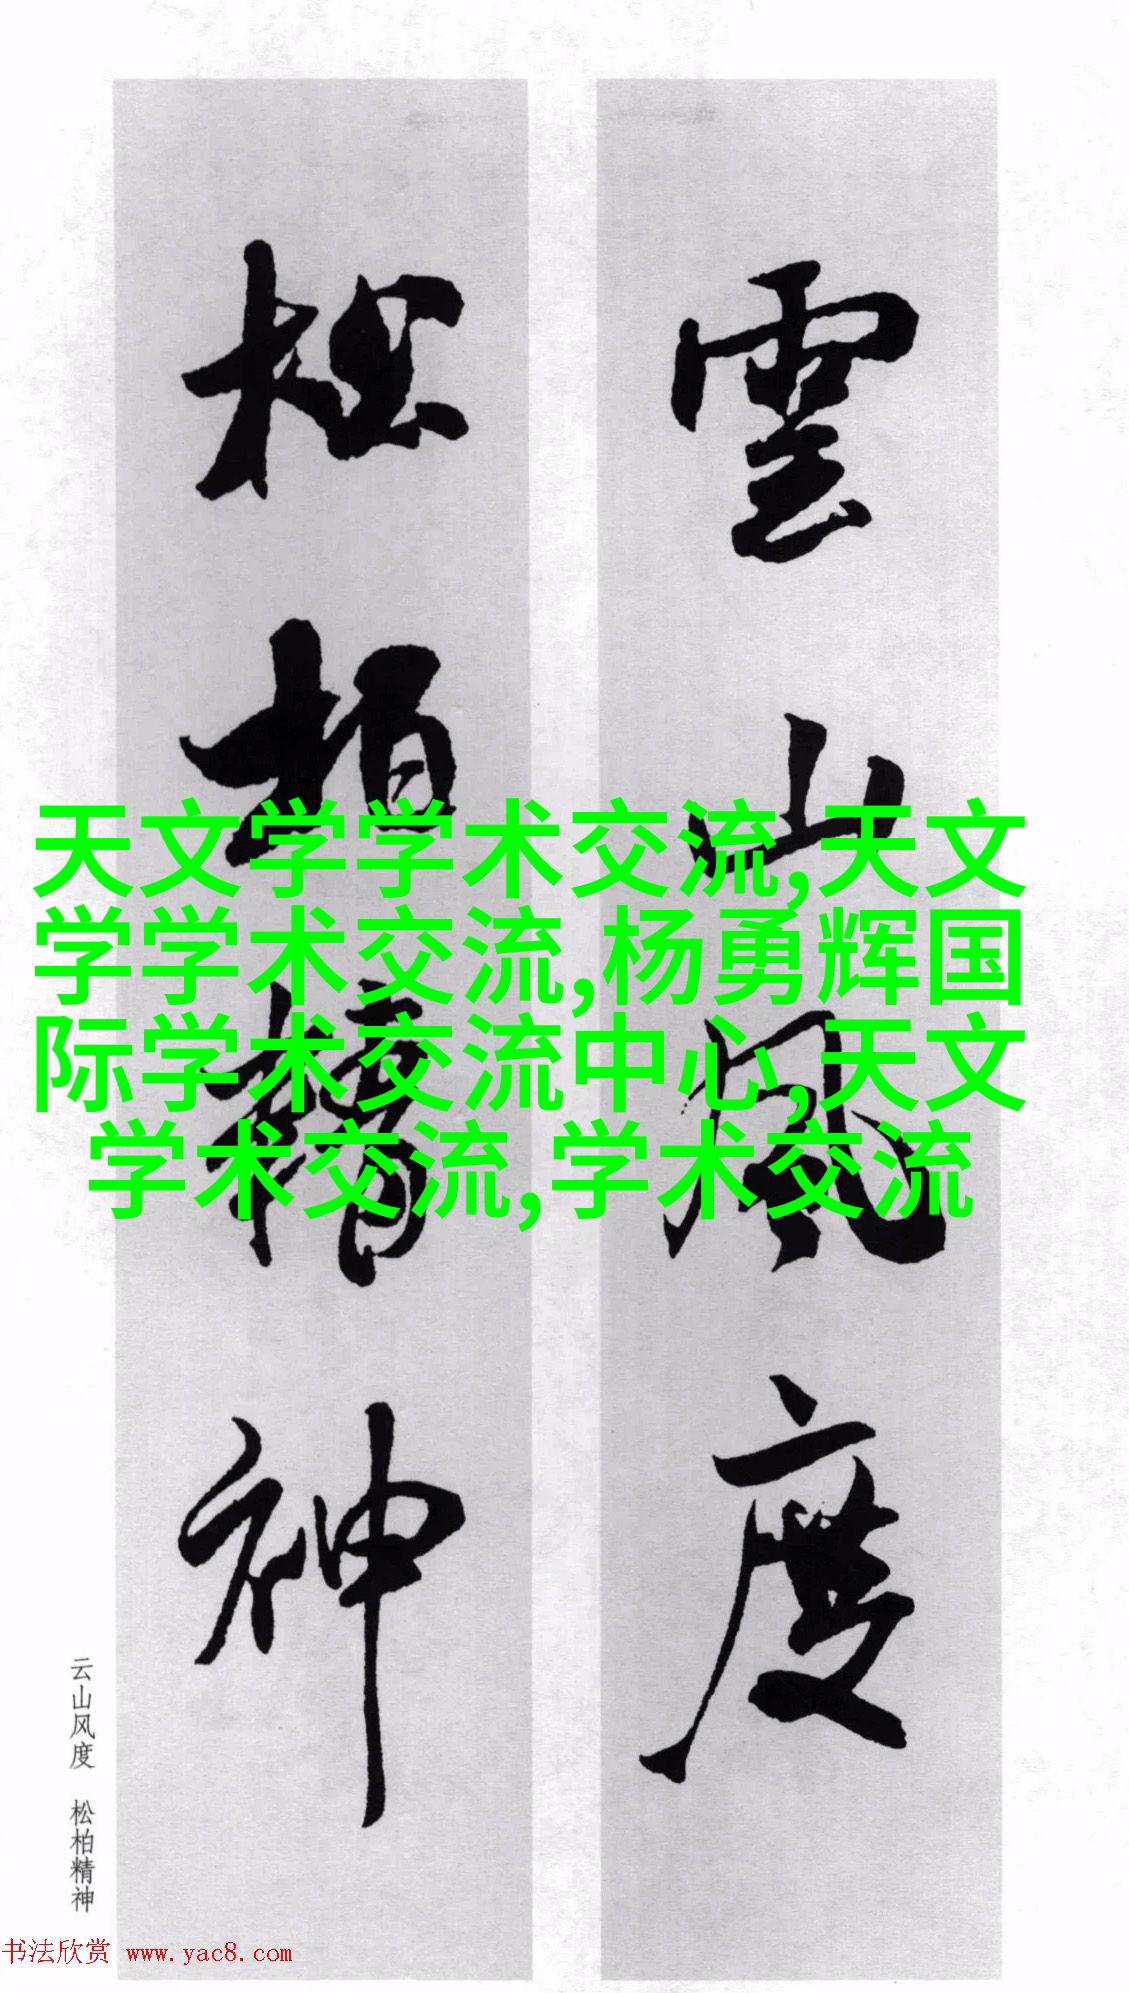 雲山風度
松柏精神
天文学学术交流,天文
学学术交流,杨勇辉国
际学术交流中心,天文
学术交流,学术交流
云山风度 松柏精神
书法欣赏 www.yac8.com